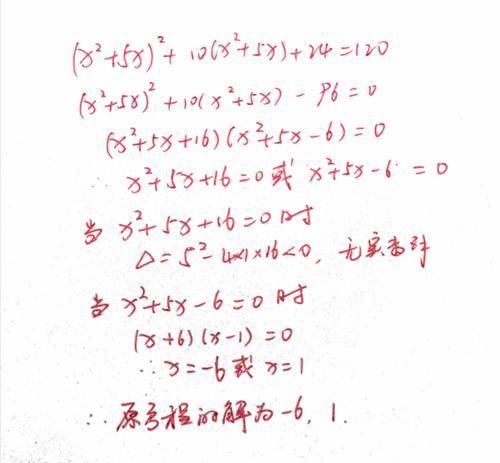 (x²+5x)²+10(x²+5x)+24=120
(x²+5x)²+10(x²+5x)-96=0
(x²+5x+16)(x²+5x-6)=0
∴ x²+5x+16=0或x²+5x-6=0
当x²+5x+16=0时
Δ=5²-4×1×16<0, 无实数解
当x²+5x-6=0时
(x+6)(x-1)=0
∴x=-6或x=1
∴原方程的解为-6, 1.